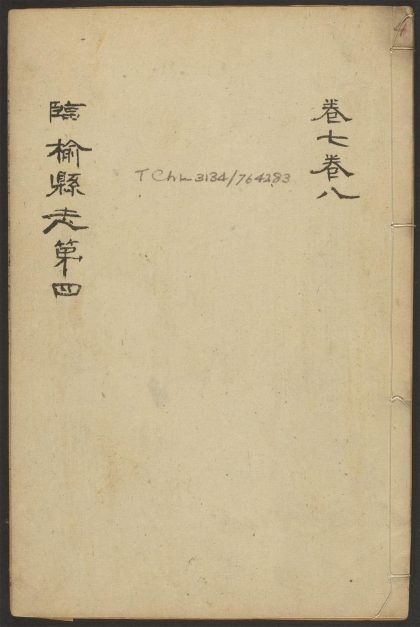 卷七卷八
T Chk 3134/764283
臨榆縣志第四